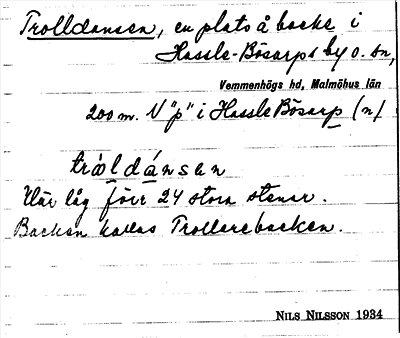 Trolldansen, en plats å backe i
Hassle-Bösarps by o. sn,
Vemmenhögs hd, Malmöhus län
200 m. V "p" i Hassle Bösarp (n)
tràoldánsen
Här låg förr 24 stora stenar.
Backen kallas Trollarebacken.
NILS NILSSON 1934